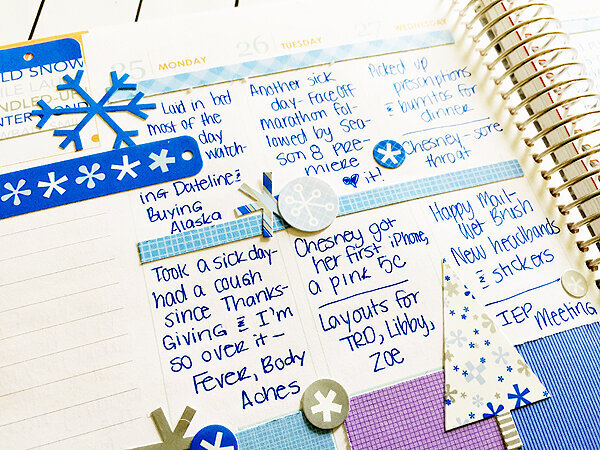 OLD SNOW
25 MONDAY
Laid in bed
most of the
day
watch-
ing Dateline &
Buying
Alaska
Took a sick day-
had a cough
since Thanks-
Giving & I'm
so over it -
Fever, Body
Aches
26 TUESDAY
Another sick
day - Face Off
marathon fol-
lowed by sea-
son 8 pre-
miere
it!
Chesney got
her first iPhone,
a pink 5c
Layouts for
TRD, Libby,
Zoe
27 WEDNESDAY
Picked up
prescriptions
& burritos for
dinner
Chesney - sore
throat
Happy Mail -
Wet Brush
New headbands
& stickers
IEP Meeting